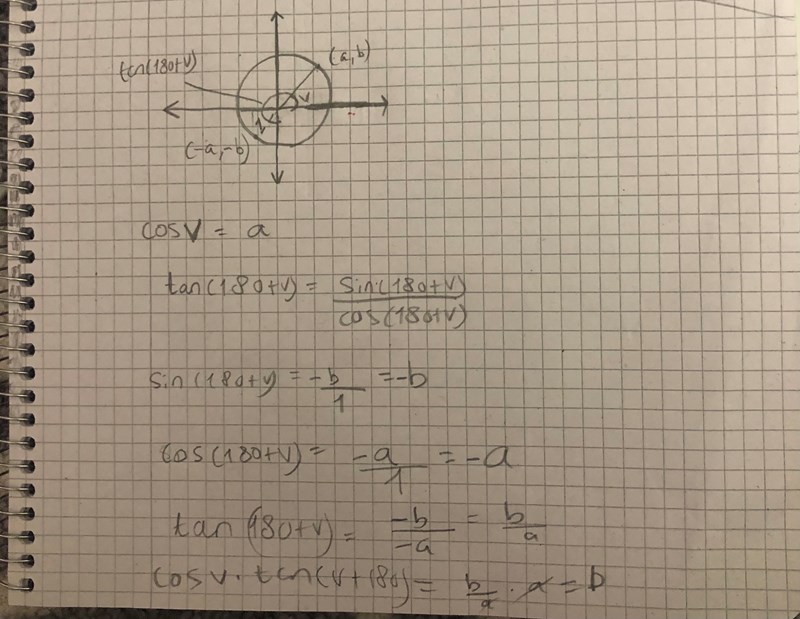 (a,b)
tan(180+v)
v
(-a,-b)
cosv = a
tan(180+v) = sin(180+v)/cos(180+v)
sin(180+v) = -b/1 = -b
cos(180+v) = -a/1 = -a
tan(180+v) = -b/-a = b/a
cosv · tan(v+180) = b/a · a = b